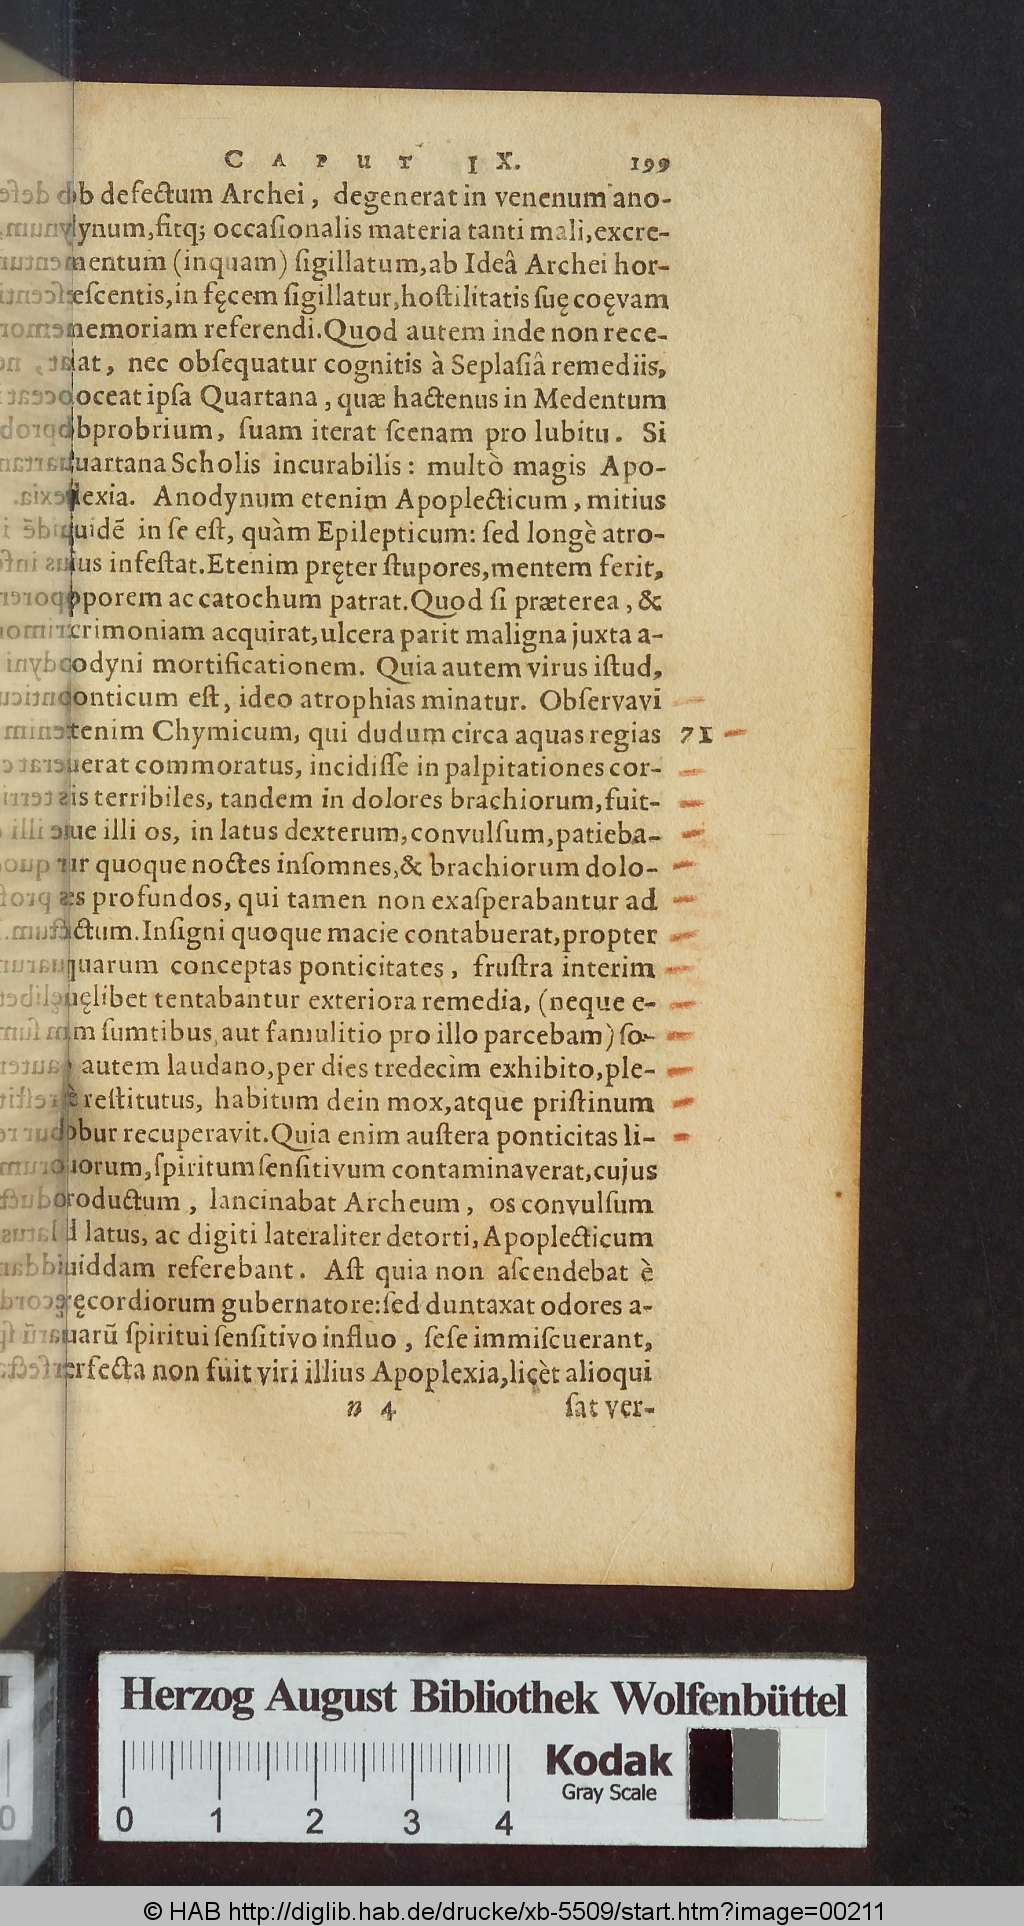 CAPUT IX. 199
ob defectum Archei, degenerat in venenum ano-
dynum, fitq; occasionalis materia tanti mali, excre-
mentum (inquam) sigillatum, ab Ideâ Archei hor-
rescentis, in fęcem sigillatur, hostilitatis suę coęvam
memoriam referendi. Quod autem inde non rece-
dat, nec obsequatur cognitis à Seplasiâ remediis,
doceat ipsa Quartana, quæ hactenus in Medentum
obprobrium, suam iterat scenam pro lubitu. Si
quartana Scholis incurabilis: multò magis Apo-
plexia. Anodynum etenim Apoplecticum, mitius
quidẽ in se est, quàm Epilepticum: sed longè atro-
cius infestat. Etenim pręter stupores, mentem ferit,
soporem ac catochum patrat. Quod si præterea, &
acrimoniam acquirat, ulcera parit maligna juxta a-
nodyni mortificationem. Quia autem virus istud,
ponticum est, ideo atrophias minatur. Observavi
etenim Chymicum, qui dudum circa aquas regias 71
fuerat commoratus, incidisse in palpitationes cor-
dis terribiles, tandem in dolores brachiorum, fuit-
que illi os, in latus dexterum, convulsum, patieba-
tur quoque noctes insomnes, & brachiorum dolo-
res profundos, qui tamen non exasperabantur ad
tactum. Insigni quoque macie contabuerat, propter
aquarum conceptas ponticitates, frustra interim
quęlibet tentabantur exteriora remedia, (neque e-
nim sumtibus, aut famulitio pro illo parcebam) so-
lo autem laudano, per dies tredecim exhibito, ple-
nè restitutus, habitum dein mox, atque pristinum
robur recuperavit. Quia enim austera ponticitas li-
quorum, spiritum sensitivum contaminaverat, cujus
productum, lancinabat Archeum, os convulsum
ad latus, ac digiti lateraliter detorti, Apoplecticum
quiddam referebant. Ast quia non ascendebat è
pręcordiorum gubernatore: sed duntaxat odores a-
quarũ spiritui sensitivo influo, sese immiscuerant,
perfecta non fuit viri illius Apoplexia, licèt alioqui
n 4 sat ver-
Herzog August Bibliothek Wolfenbüttel
Kodak
Gray Scale
0 1 2 3 4
© HAB http://diglib.hab.de/drucke/xb-5509/start.htm?image=00211